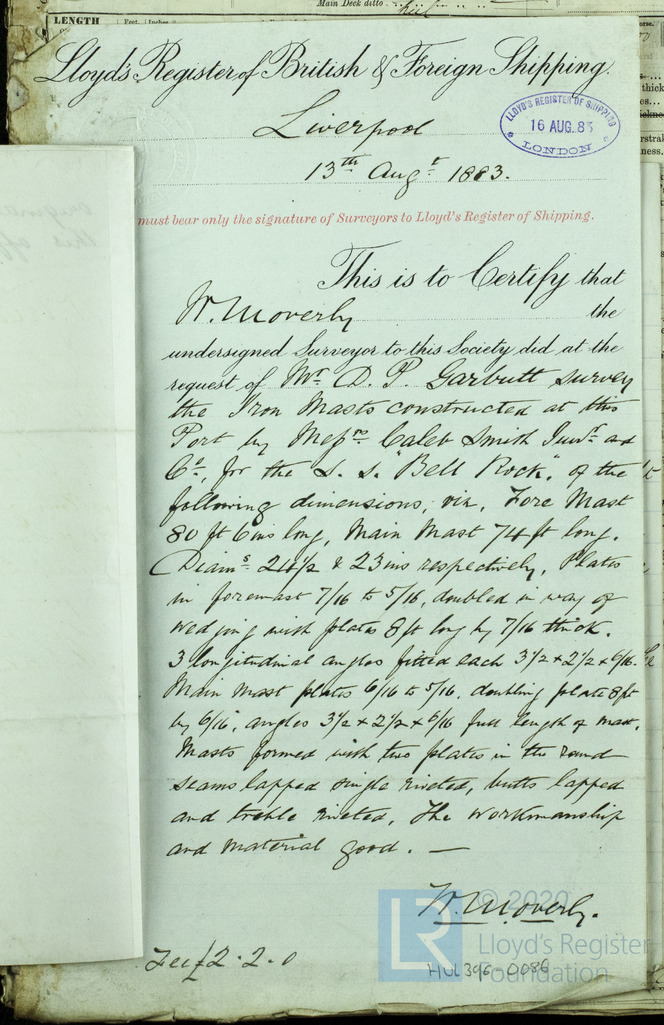 Main Deck ditto
LENGTH
Feet. Inches
Lloyd's Register of British & Foreign Shipping.
Liverpool
LLOYD'S REGISTER OF SHIPPING
16 AUG. 83
LONDON
13th Augt 1883.
must bear only the signature of Surveyors to Lloyd's Register of Shipping.
This is to Certify that
W. Moverly the
undersigned Surveyor to this Society did at the
request of Mr D. P. Garbutt survey
the Iron Masts constructed at this
Port by Messrs Caleb Smith Junr. and
Co., for the S. S. "Bell Rock", of the
following dimensions, viz, Fore Mast
80 ft 6 ins long, Main Mast 74 ft long.
Diams. 24 1/2 & 23 ins respectively, Plates
in foremast 7/16 to 5/16, doubled in way of
wedging with plates 8ft long by 7/16 thick.
3 longitudinal angles fitted each 3 1/2 x 2 1/2 x 6/16.
Main Mast plates 6/16 to 5/16, doubling plate 8ft
by 6/16, angles 3 1/2 x 2 1/2 x 6/16 full length of mast.
Masts formed with two plates in the round
seams lapped single riveted, butts lapped
and treble riveted, The workmanship
and material good. —
W. Moverly.
Fee £2.2.0
HUL396-0086
LR
© 2020
Lloyd's Register
Foundation